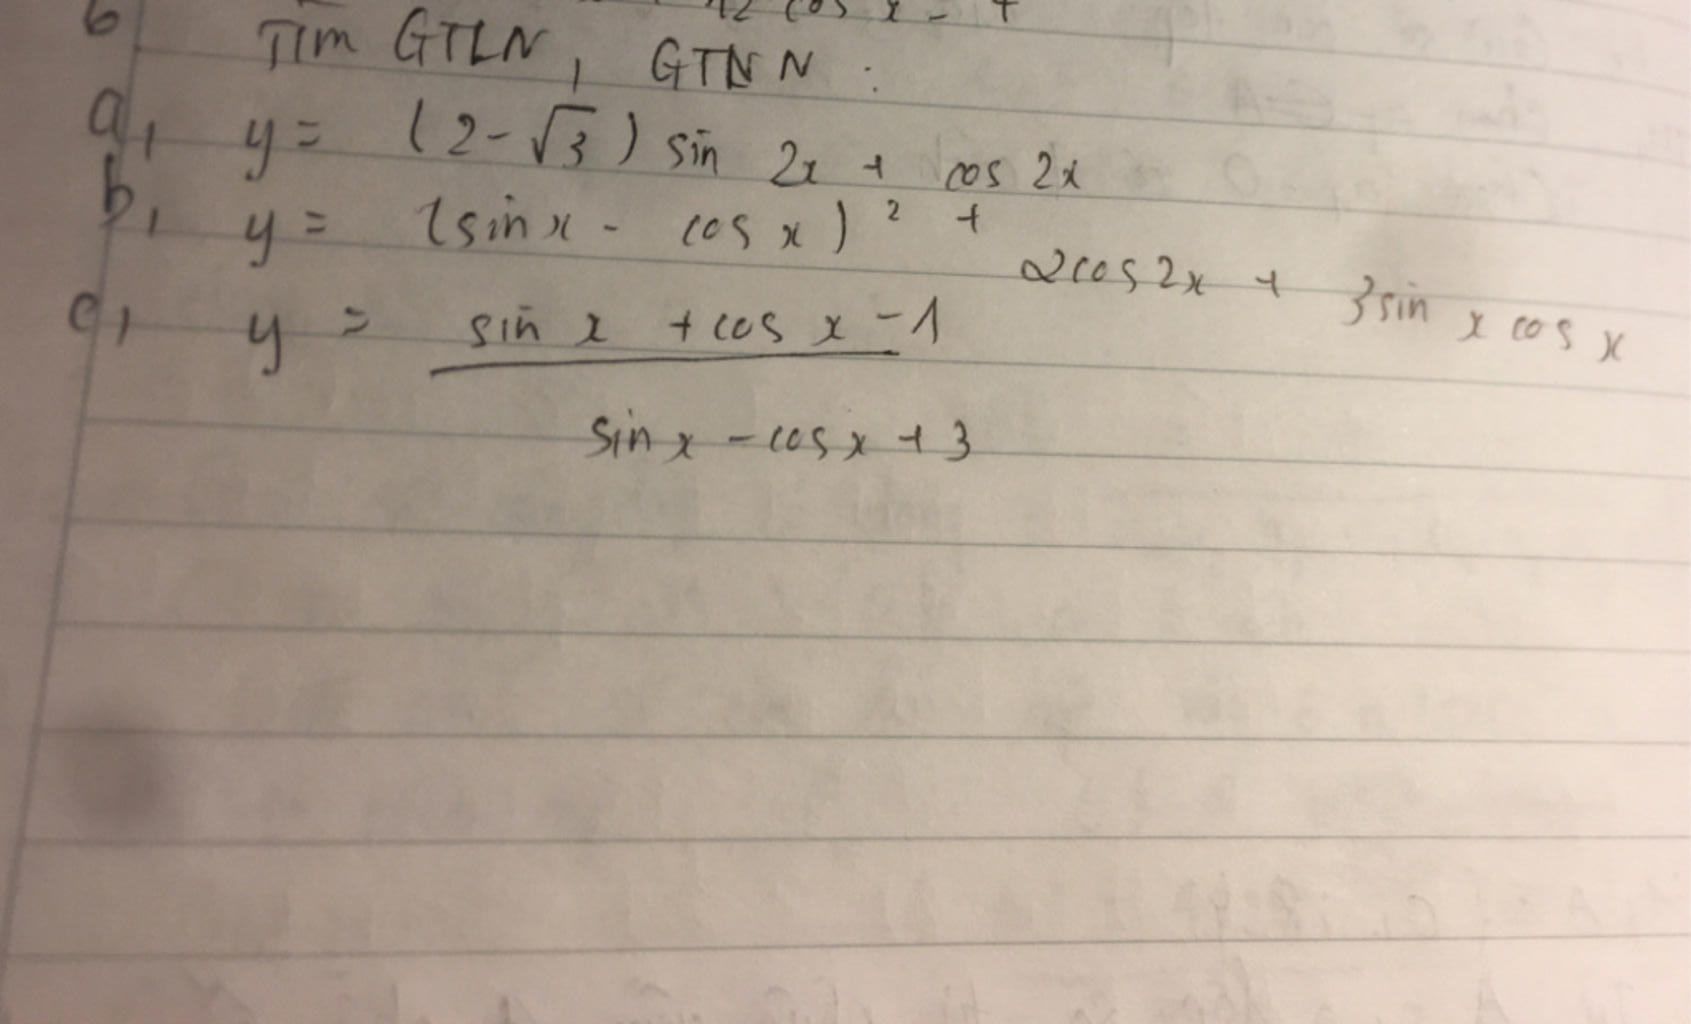 6 Tìm GTLN, GTNN :
a, y = (2-√3) sin 2x + cos 2x
b, y = (sin x - cos x)² + 2cos 2x + 3sin x cos x
c, y = sin x + cos x - 1
sin x - cos x + 3